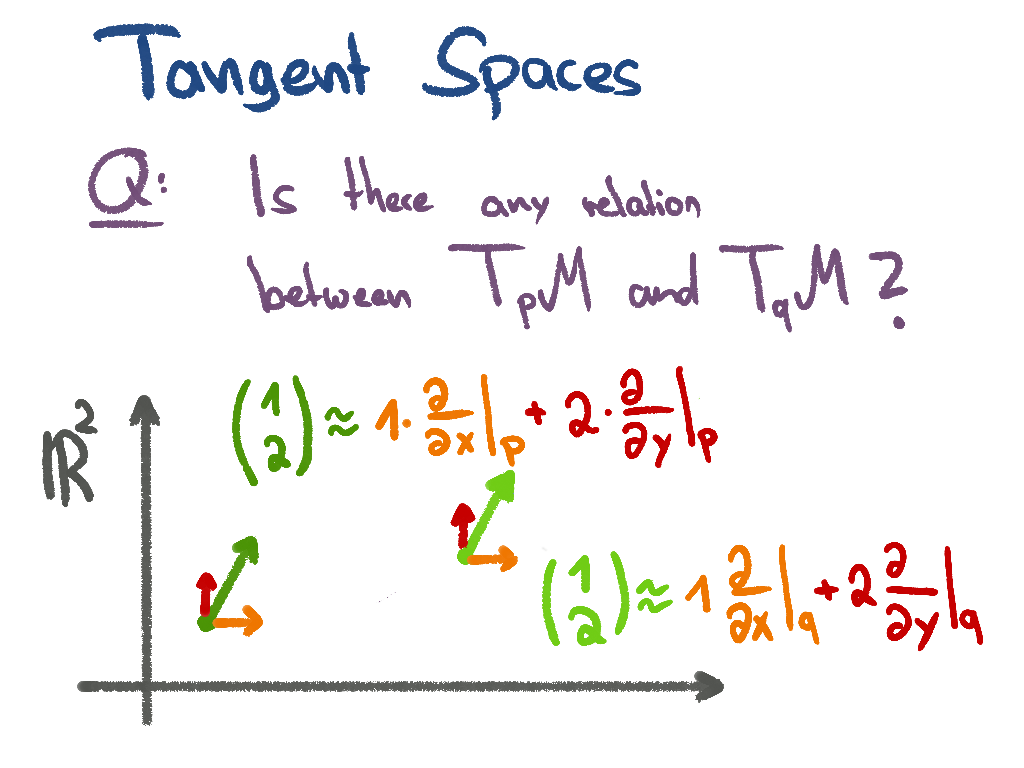 Tangent Spaces
Q: Is there any relation
between TₚM and T_qM?
ℝ²
(1 2) ≈ 1·∂/∂x|ₚ + 2·∂/∂y|ₚ
(1 2) ≈ 1 ∂/∂x|_q + 2 ∂/∂y|_q